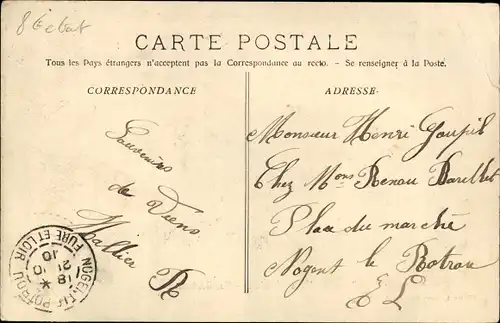 CARTE POSTALE
Tous les Pays étrangers n'acceptent pas la Correspondance au recto. - Se renseigner à la Poste.
CORRESPONDANCE
ADRESSE
Souvenirs
de Viens
Mallier
R
Monsieur Henri Goupil
Chez Mons Renau Barillet
Place du marché
Nogent le Rotrou
E L
NOGENT-LE-ROTROU
EURE ET LOIR
18
21
10